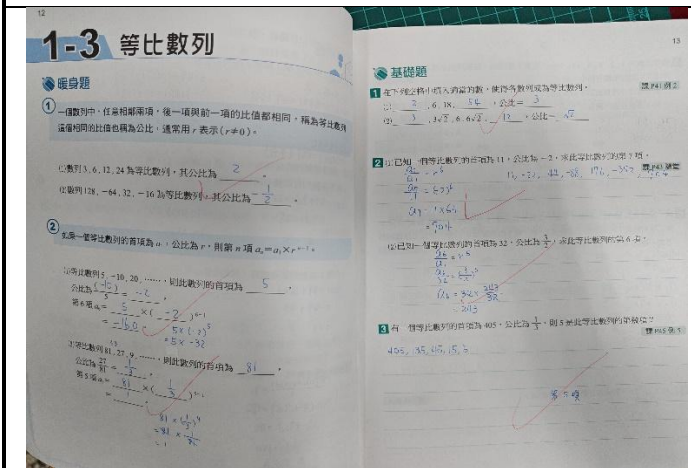 12
1-3 等比數列
暖身題
① 一個數列中，任意相鄰兩項，後一項與前一項的比值都相同，稱為等比數列
這個相同的比值也稱為公比，通常用 r 表示 (r≠0)。
(1)數列 3, 6, 12, 24 為等比數列，其公比為 2 。
(2)數列 128, -64, 32, -16 為等比數列，其公比為 -1/2 。
② 如果一個等比數列的首項為 a₁，公比為 r，則第 n 項 aₙ=a₁×rⁿ⁻¹。
(1)等比數列 5, -10, 20, ……，則此數列的首項為 5 ，
公比為 (-10)/5 = -2 ，
第 6 項 a₆= 5 ×( -2 )⁶⁻¹
= -160 。
5×(-2)⁵
=5×-32
(2)等比數列 81, 27, 9, ……，則此數列的首項為 81 ，
公比為 27/81 = 1/3 ，
第 5 項 a₅= 81 ×( 1/3 )⁵⁻¹
= 1 。
81×(1/3)⁴
=81×1/81
=1
13
基礎題
1 在下列空格中填入適當的數，使得各數列成為等比數列。
(1) 2 , 6, 18, 54 ，公比= 3
(2) 3 , 3√2, 6, 6√2, 12 ，公比= √2
2 (1)已知一個等比數列的首項為 11，公比為 -2，求此等比數列的第 7 項。
= 704
(2)已知一個等比數列的首項為 32，公比為 3/2，求此等比數列的第 6 項。
a₆ = 32×243/32
=243
3 有一個等比數列的首項為 405，公比為 1/3，則 5 是此等比數列的第幾項？
405, 135, 45, 15, 5